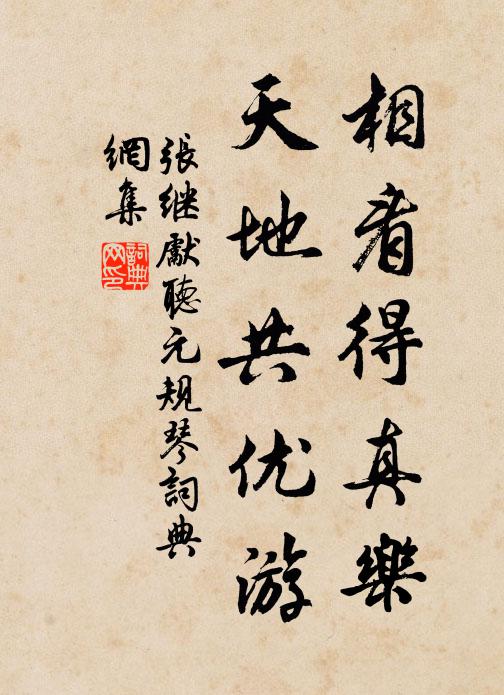 相看得真樂
天地共优游
張继獻聽元规琴詞典
網集
詞典
网印